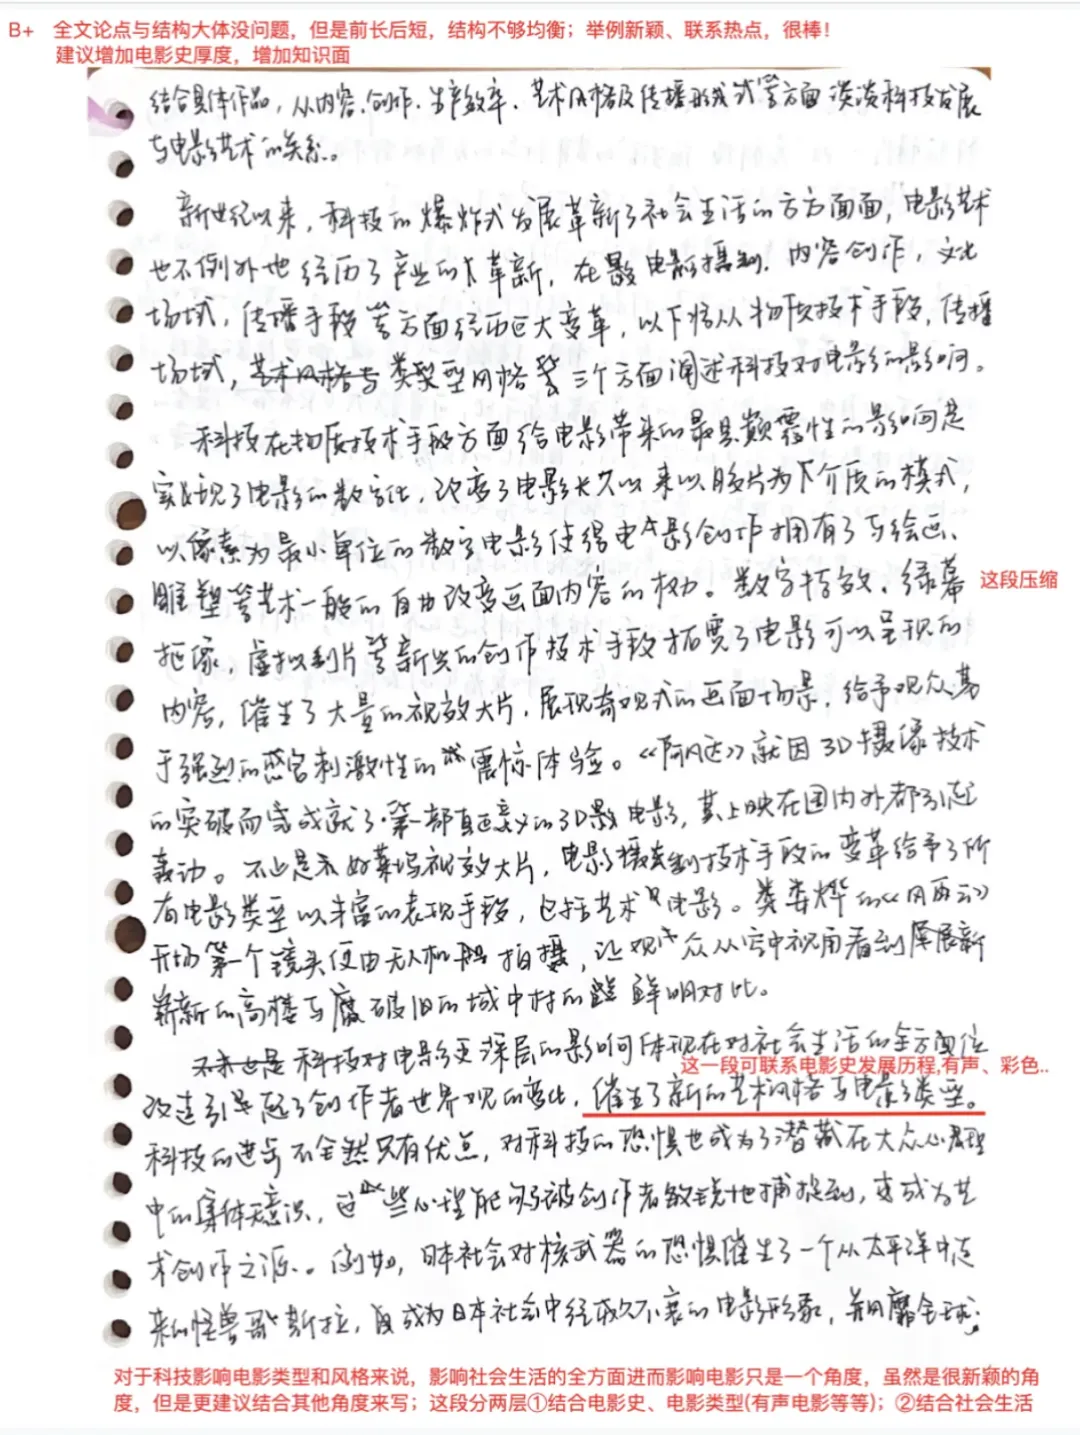 B+ 全文论点与结构大体没问题，但是前长后短，结构不够均衡；举例新颖、联系热点，很棒！
建议增加电影史厚度，增加知识面
结合具体作品，从内容、创作、生产效率、艺术风格及传播形式等方面谈谈科技发展
与电影艺术的关系。
新世纪以来，科技的爆炸式发展革新了社会生活的方方面面，电影艺术
也不例外地经历了产业的革新，在电影摄制、内容创作，文化
场域，传播手段等方面经历巨大变革，以下将从物质技术手段，传播
场域，艺术风格与类型风格等三个方面阐述科技对电影的影响。
科技在物质技术手段方面给电影带来的最具颠覆性的影响是
实现了电影的数字化，改变了电影长久以来以胶片为介质的模式，
以像素为最小单位的数字电影使得电影创作拥有了与绘画、
雕塑等艺术一般的自由改变画面内容的权力。数字特效、绿幕
这段压缩
抠像，虚拟制片等新兴的创作技术手段拓宽了电影可以呈现的
内容，催生了大量的视效大片，展现奇观式的画面场景，给予观众易
于强烈的感官刺激性的震惊体验。《阿凡达》就因3D摄像技术
的突破而成就了第一部真正意义的3D电影，其上映在国内外都引起
轰动。不止是好莱坞视效大片，电影摄制技术手段的变革给予了所
有电影类型以丰富的表现手段，包括艺术电影。娄烨的《风雨云》
开场第一个镜头便由无人机拍摄，让观众从空中视角看到广展新
崭新的高楼与破旧的城中村的鲜明对比。
不止也是科技对电影更深层的影响体现在对社会生活的全方面位
这一段可联系电影史发展历程，有声、彩色..
改造引起了创作者世界观的变化，催生了新的艺术风格与电影类型。
科技的进步不全然只有优点，对科技的恐惧也成为了潜藏在大众心理
中的集体意识，这些心理能够被创作者敏锐地捕捉到，变成为艺
术创作之源。例如，日本社会对核武器的恐惧催生了一个从太平洋中走
来的怪兽哥斯拉，成为日本社会中经久不衰的电影形象，并风靡全球；
对于科技影响电影类型和风格来说，影响社会生活的全方面进而影响电影只是一个角度，虽然是很新颖的角
度，但是更建议结合其他角度来写；这段分两层①结合电影史、电影类型(有声电影等等)；②结合社会生活